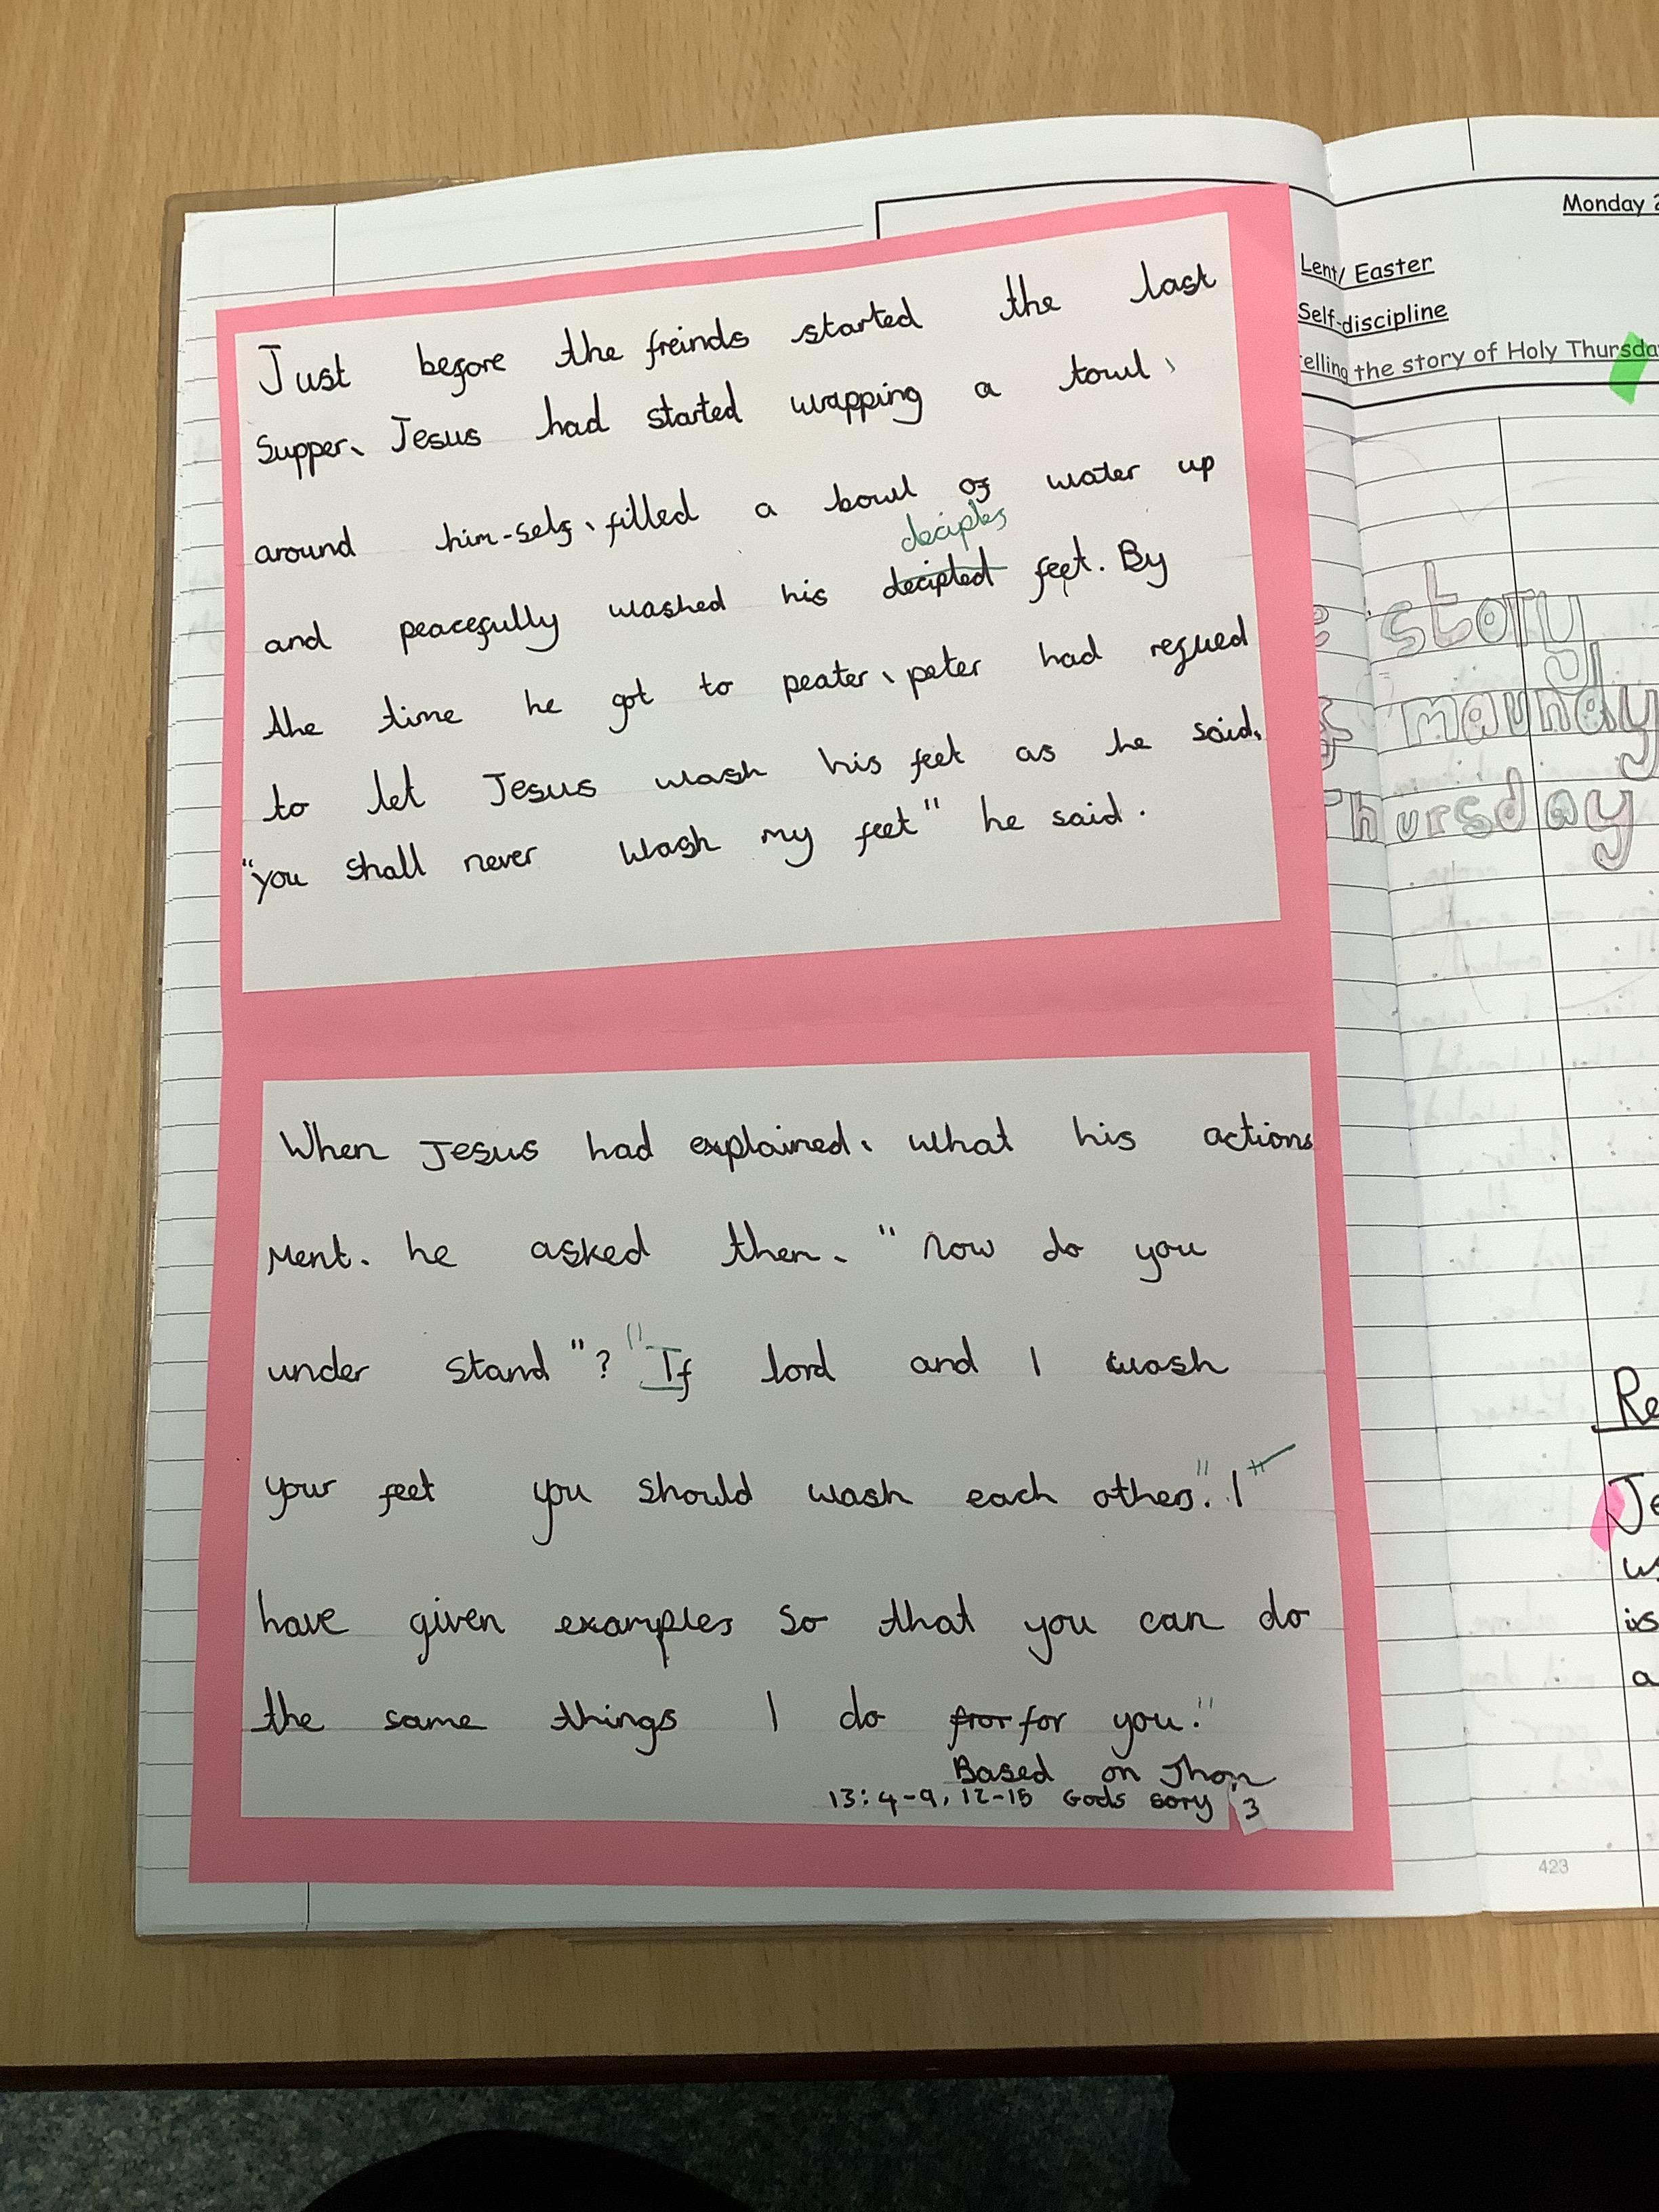 Just before the freinds started the last
Supper, Jesus had started wrapping a towl,
around him-self, filled a bowl of water up
deciples
and peacefully washed his decipted feet. By
the time he got to peater, peter had regued
to let Jesus wash his feet as he said,
"you shall never wash my feet" he said.
When Jesus had explained, what his actions
Ment. he asked then, "now do you
under stand"? "If lord and I wash
your feet you should wash each others". I
have given examples so that you can do
the same things I do fror for you."
Based on Jhon
13:4-9, 12-15 Gods sory 3
Monday
Lent/ Easter
Self-discipline
elling the story of Holy Thursda
story
maundy
Thursday
Re
Je
is
a
423